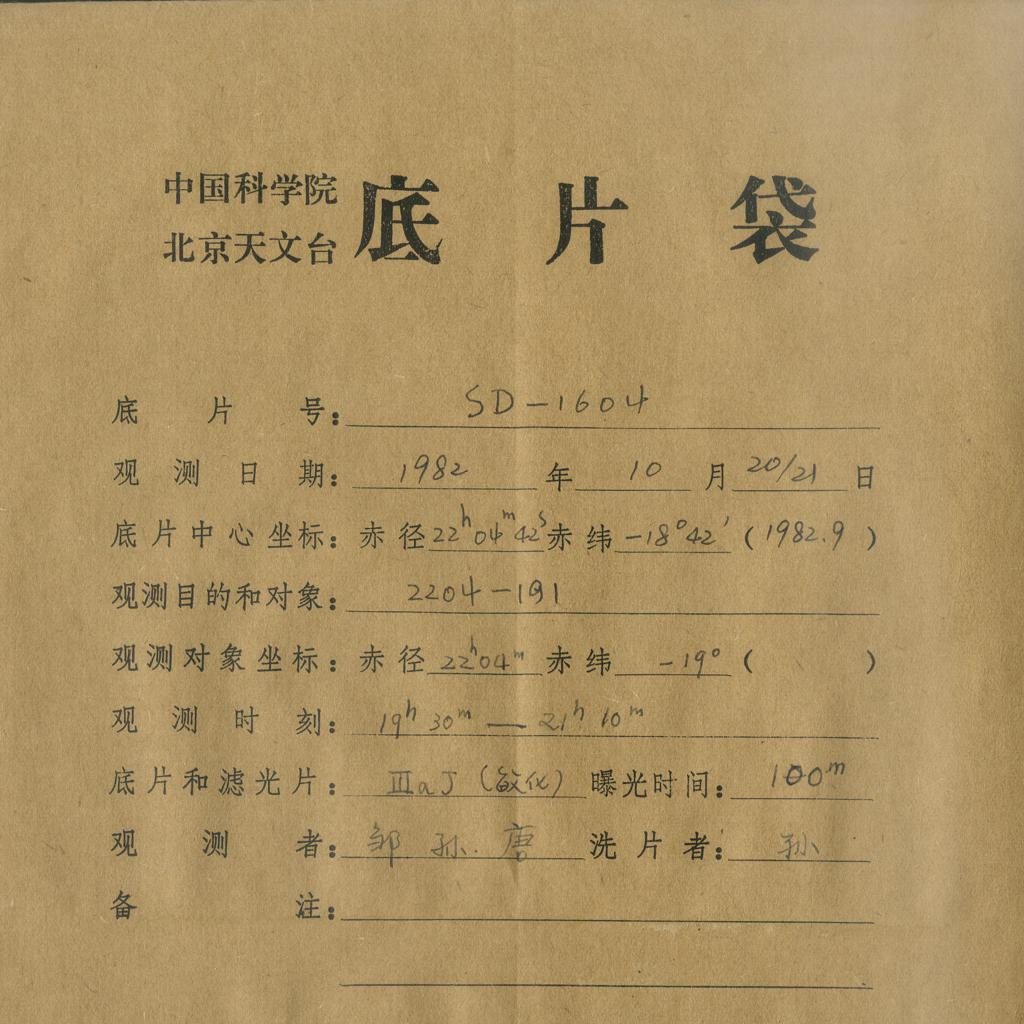 中国科学院
北京天文台
底片袋
底片号：SD-1604
观测日期：1982年10月20/21日
底片中心坐标：赤径22ʰ04ᵐ42ˢ赤纬-18°42′(1982.9)
观测目的和对象：2204-191
观测对象坐标：赤径22ʰ04ᵐ赤纬-19°( )
观测时刻：19ʰ30ᵐ—21ʰ10ᵐ
底片和滤光片：ⅢaJ(敏化)曝光时间：100ᵐ
观测者：邹 孙.唐 洗片者：孙
备注：